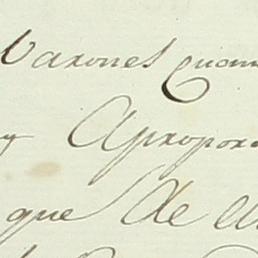 Varones Quan
y Apropor
que de a